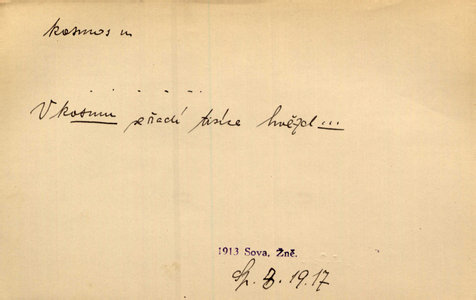 kosmos m
. . . . . .
V kosmu se řadí tisíce hvězd...
1913 Sova, Žně.
Sp. 19.17